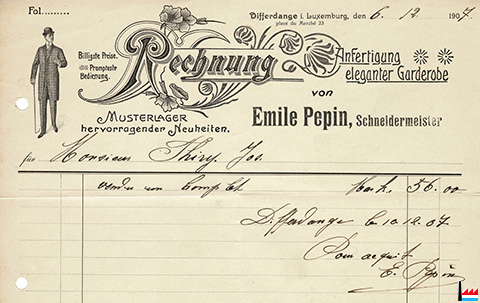 Fol.........
Differdange i. Luxemburg, den 6. 12. 1907.
place du Marché 23
Billigste Preise.
Prompteste
Bedienung.
Rechnung
Anfertigung
eleganter Garderobe
von
Musterlager
hervorragender Neuheiten.
Emile Pepin, Schneidermeister
für Monsieur Thiry Jos.
complet Mark. 56.00
Differdange le 10.12.07
Pour acquit
E. Pepin